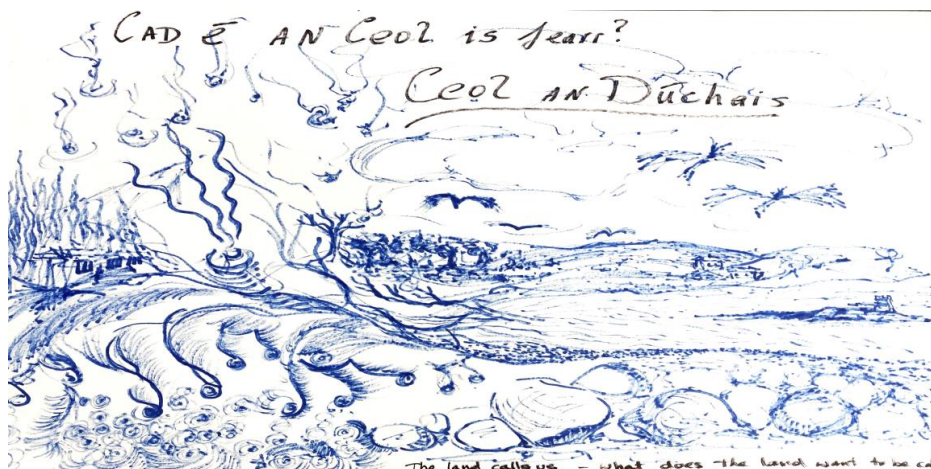 CAD Ē AN CeoL is fearr?
CeoL AN Dūchais
The land calls us - what does the land want to be